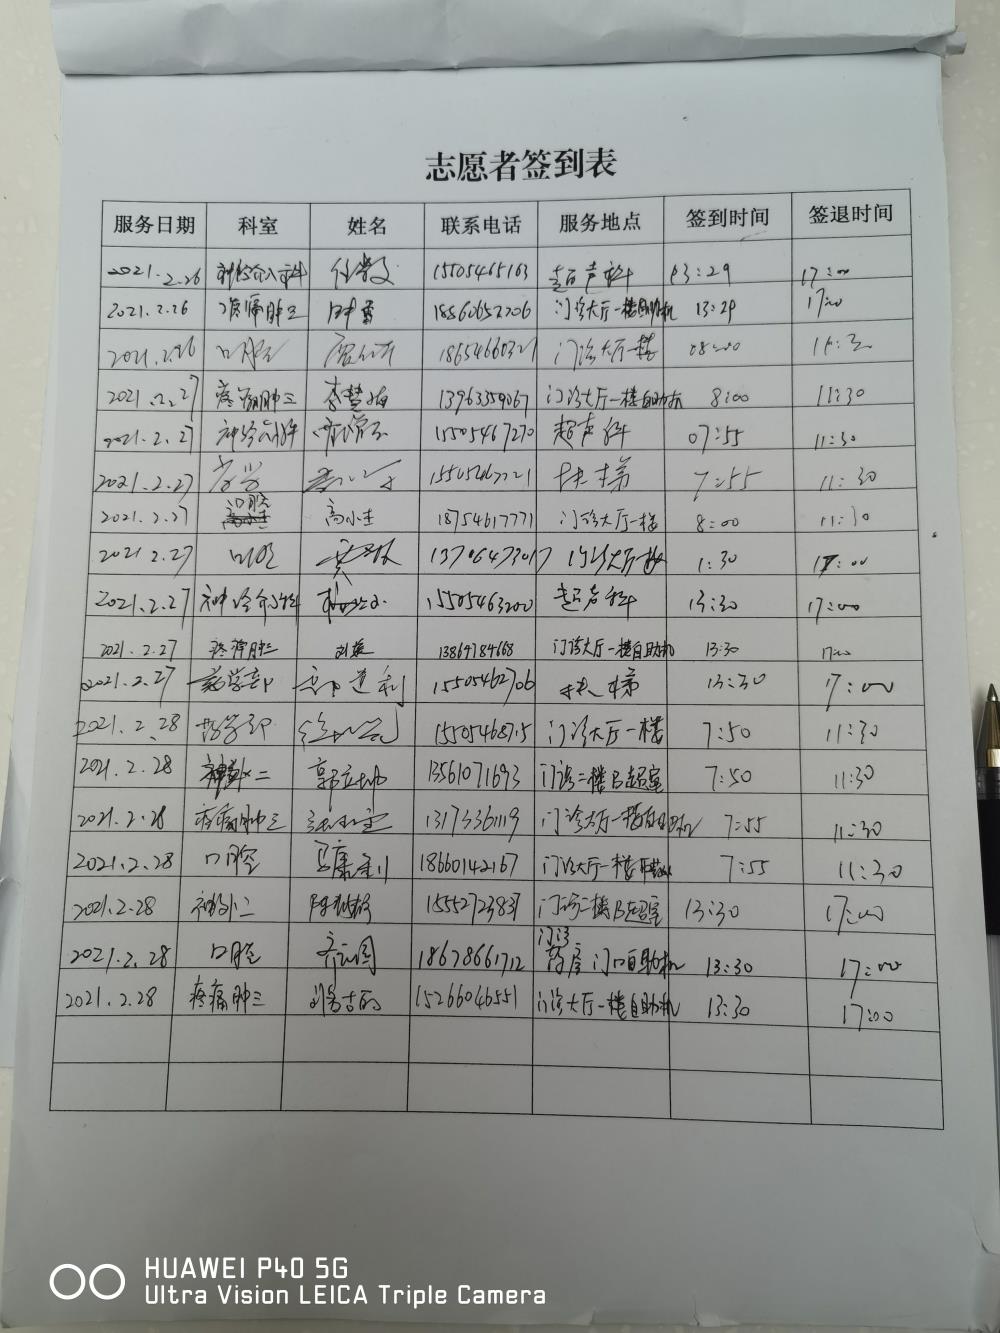 志愿者签到表
服务日期 科室 姓名 联系电话 服务地点 签到时间 签退时间
2021.2.26 神经介入科 15505465163 超声科 13:29 17:00
2021.2.26 疼痛肿三 18560652206 门诊大厅一楼自助机 13:29 17:00
2021.2.26 口腔 18654660321 门诊大厅一楼 08:00
2021.2.27 疼痛肿三 李慧梅 13963359067 门诊大厅一楼自助机 8:00 11:30
2021.2.27 神经介入科 15505467270 超声科 07:55 11:30
2021.2.27 药学 扶梯 7:55 11:30
2021.2.27 口腔 高小生 18754617771 门诊大厅一楼 8:00 11:30
2021.2.27 口腔 13706473017 门诊大厅一楼 1:30 17:00
2021.2.27 神经介入科 15505463200 超声科 13:30 17:00
2021.2.27 疼痛肿三 13869184668 门诊大厅一楼自助机 13:30 17:00
2021.2.27 药学部 15505462706 扶梯 13:30 17:00
2021.2.28 药学部 15505468715 门诊大厅一楼 7:50 11:30
2021.2.28 神外二 郭立坤 13561071693 门诊二楼B超室 7:50 11:30
2021.2.28 疼痛肿三 门诊大厅一楼自助机 7:55 11:30
2021.2.28 口腔 18660142167 门诊大厅一楼 7:55 11:30
2021.2.28 神外二 15552723837 门诊二楼B超室 13:30 17:00
2021.2.28 口腔 18678661712 门诊药房门口自助机 13:30 17:00
2021.2.28 疼痛肿三 15266046551 门诊大厅一楼自助机 13:30 17:00
HUAWEI P40 5G
Ultra Vision LEICA Triple Camera